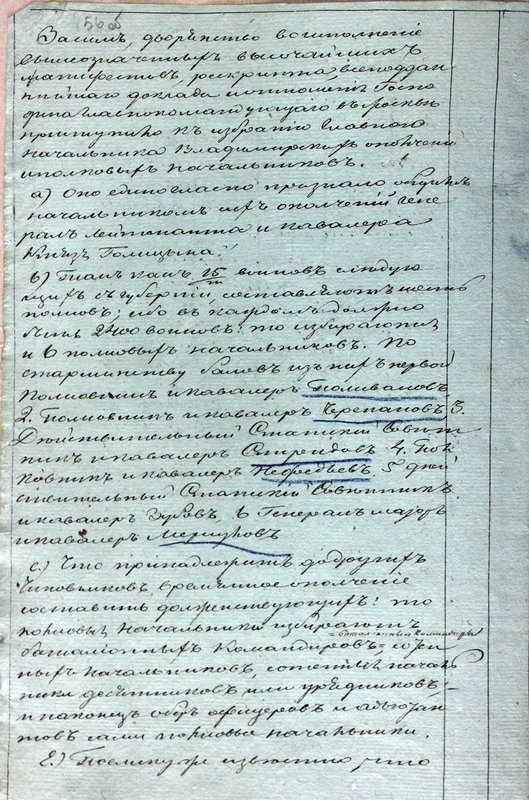 56 об
Засимъ, дворянство во исполненіе
вышеозначенныхъ высочайшихъ
манифестовъ, рескрипта всеподдан
нѣйшаго доклада и отношенія Госпо
дина Главнокомандующаго въ Москвѣ
приступило къ избранію Главнаго
начальника Владимирскаго ополченія
и полковыхъ начальниковъ.
а) Оно единогласно признало общимъ
начальникомъ сихъ ополченій Гене
ралъ Лейтенанта и Кавалера
Князя Голицына.
b) Такъ какъ 15 воиновъ слѣдую
щихъ съ губерніи, составляютъ шесть
полковъ; ибо въ каждомъ должно
быть 2400 воиновъ: то избираются
и 6 полковыхъ начальниковъ. По
старшинству баловъ изъ нихъ первой
Полковникъ и кавалеръ Поливановъ
2. Полковникъ и кавалеръ Черепановъ 3.
Дѣйствительный Статскій Совѣт
никъ и кавалеръ Спиридовъ 4. Пол
ковникъ и кавалеръ Нефедьевъ 5 Дѣй
ствительный Статскій Совѣтникъ
и кавалеръ Зубовъ, 6 Генералъ маіоръ
и кавалеръ Меркуловъ
с.) Что принадлежитъ до другихъ
Чиновниковъ, временное ополченіе
составить долженствующихъ: то
полковые начальники избираютъ
баталіонныхъ Командировъ =
= баталіонные командиры
ныхъ начальниковъ, сотенные началь
ники десятниковъ, или урядниковъ,
и наконецъ оберъ офицеровъ и адъютан
товъ сами полковые начальники.
Поелику же извѣстно, что